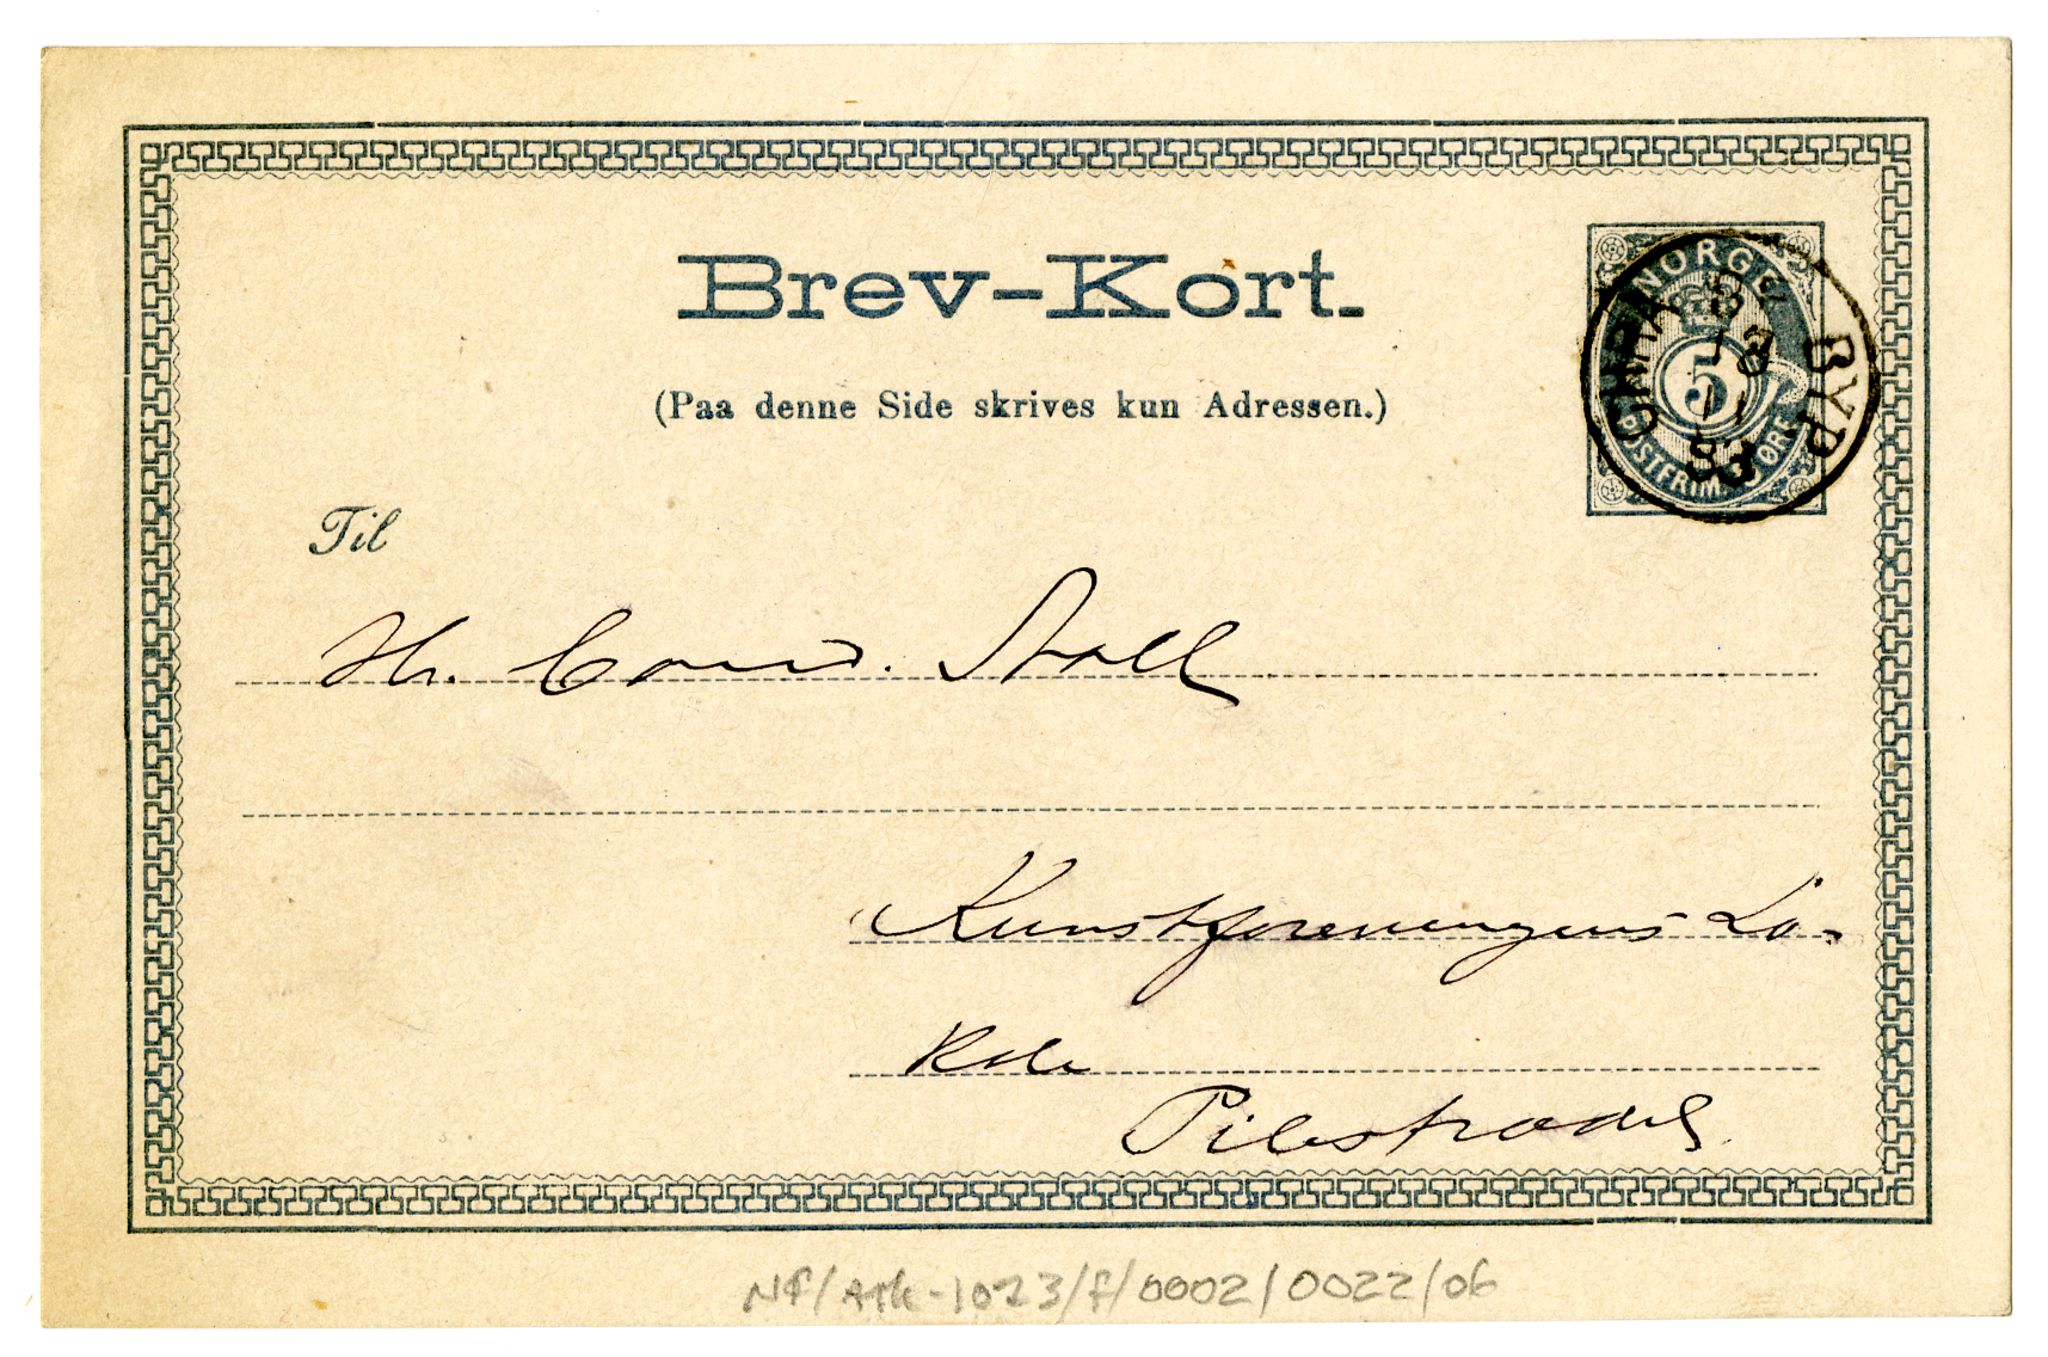 Brev-Kort.
(Paa denne Side skrives kun Adressen.)
NORGE
5
POSTFRIM. 5 ØRE
CHRA BYP.
Til
Hr. Cand. Stoll
Kunstforeningens Lo-
kale
Pilestrædet
NF/Ark-1023/F/0002/0022/06